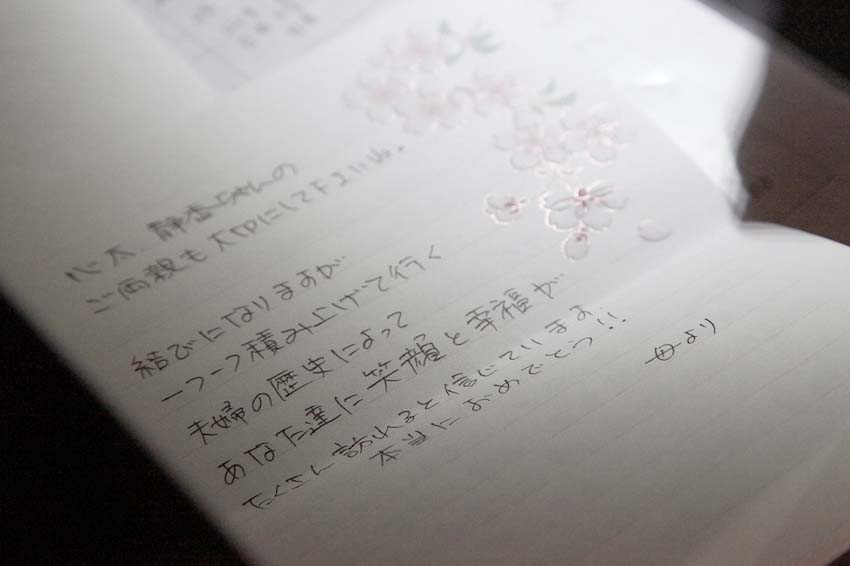 心太、静香ちゃんの
ご両親も大切にして下さいね。
結びになりますが
一つ一つ積み上げて行く
夫婦の歴史によって
あなた達に笑顔と幸福が
たくさん訪れると信じています
本当におめでとう!!
母より